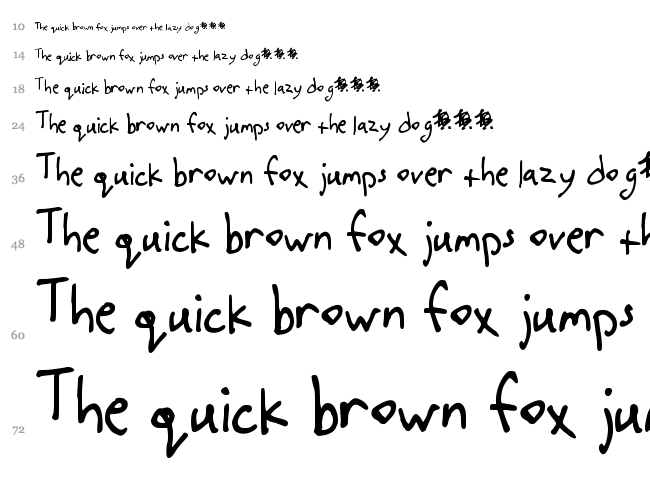 10 The quick brown fox jumps over the lazy dog
14 The quick brown fox jumps over the lazy dog
18 The quick brown fox jumps over the lazy dog
24 The quick brown fox jumps over the lazy dog
36 The quick brown fox jumps over the lazy dog
48 The quick brown fox jumps over th
60 The quick brown fox jumps
72 The quick brown fox ju